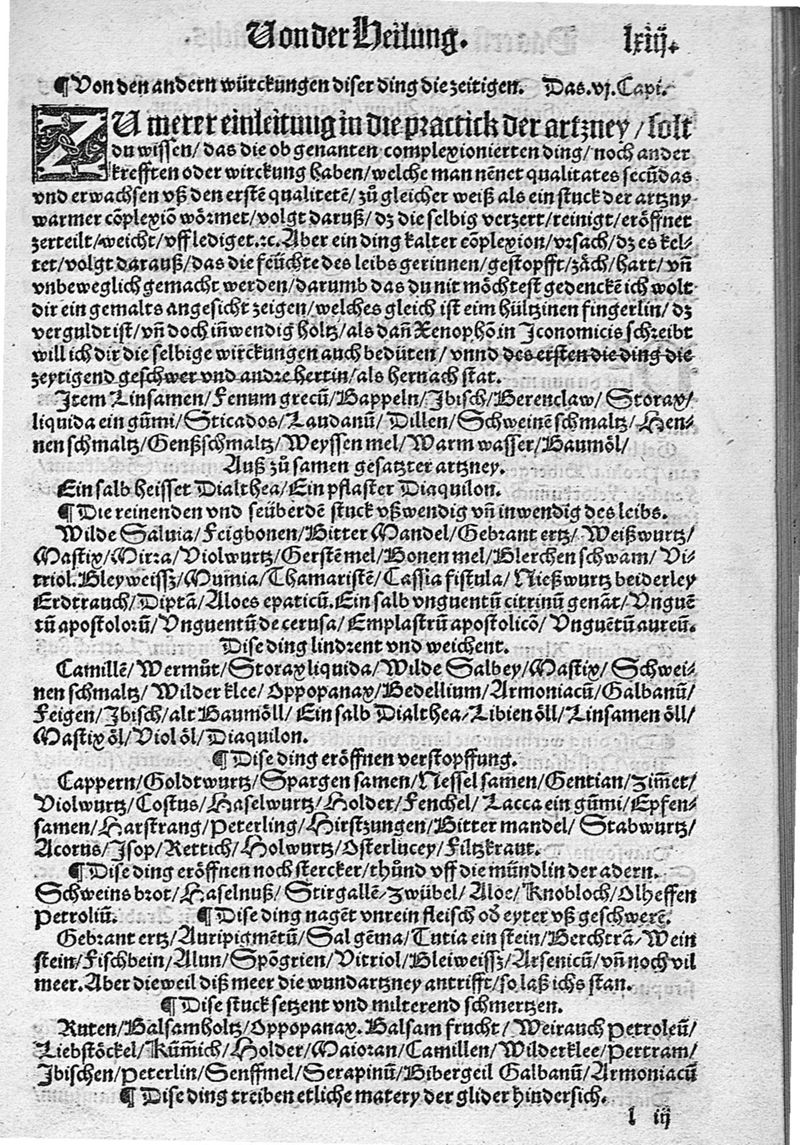 Von der Heilung. lxiij.
¶ Von den andern würckungen diser ding die zeitigen. Das. vj. Capi.
ZU merer einleitung in die practick der artzney / solt
du wissen / das die ob genanten complexionierten ding / noch ander
krefften oder wirckung haben / welche man nēnet qualitates secūdas
vnd erwachsen vß den erstē qualitetē / zů gleicher weiß als ein stuck der artzny
warmer cōplexiō wörmet / volgt daruß / dz die selbig verzert / reinigt / eröffnet
zerteilt / weicht / vfflediget.⁊c. Aber ein ding kalter cōplexion / vrsach / dz es kel-
tet / volgt darauß / das die feüchte des leibs gerinnen / gestopfft / zäch / hart / vñ
vnbeweglich gemacht werden / darumb das du nit möchtest gedenckē ich wolt
dir ein gemalts angesicht zeigen / welches gleich ist eim hültzinen fingerlin / dz
verguldt ist / vñ doch iñwendig holtz / als dañ Xenophō in Iconomicis schreibt
will ich dir die selbige wirckungen auch bedüten / vnnd des ersten die ding die
zeytigend geschwer vnd andre hertin / als hernach stat.
Item Linsamen / Fenum grecū / Bappeln / Ibisch / Berenclaw / Storax /
liquida ein gūmi / Sticados / Laudanū / Dillen / Schweinē schmaltz / Hen-
nen schmaltz / Genßschmaltz / Weyssen mel / Warm wasser / Baumöl /
Auß zů samen gesatzter artzney.
Ein salb heisset Dialthea / Ein pflaster Diaquilon.
¶ Die reinenden vnd seüberdē stuck vßwendig vñ inwendig des leibs.
Wilde Saluia / Feigbonen / Bitter Mandel / Gebrant ertz / Weißwurtz /
Mastix / Mirra / Violwurtz / Gerstē mel / Bonen mel / Blerchen schwam / Vi-
triol. Bleyweissz / Mumia / Thamaristē / Cassia fistula / Nießwurtz beiderley
Erdtrauch / Diptā / Aloes epaticū. Ein salb vnguentū citrinū genāt / Vnguē
tū apostolorū / Vnguentū de cerusa / Emplastrū apostolicō / Vnguētū aureū.
Dise ding lindrent vnd weichent.
Camillē / Wermůt / Storax liquida / Wilde Salbey / Mastix / Schwei-
nen schmaltz / Wilder klee / Oppopanax / Bedellium / Armoniacū / Galbanū /
Feigen / Ibisch / alt Baumöll / Ein salb Dialthea / Libien öll / Linsamen öll /
Mastix öl / Viol öl / Diaquilon.
¶ Dise ding eröffnen verstopffung.
Cappern / Goldtwurtz / Spargen samen / Nessel samen / Gentian / Zim̄et /
Violwurtz / Costus / Haselwurtz / Holder / Fenchel / Lacca ein gūmi / Epfen-
samen / Harstrang / Peterling / Hirstzungen / Bitter mandel / Stabwurtz /
Acorus / Isop / Rettich / Holwurtz / Osterlucey / Filtzkraut.
¶ Dise ding eröffnen noch stercker / thůnd vff die mündlin der adern.
Schweins brot / Haselnuß / Stirgallē / Zwübel / Aloe / Knobloch / Olheffen
Petroliū. ¶ Dise ding nagēt vnrein fleisch oď eyter vß geschwerē.
Gebrant ertz / Auripigmētū / Sal gēma / Tutia ein stein / Berchtrā / Wein
stein / Fischbein / Alun / Spōgrien / Vitriol / Bleiweissz / Arsenicū / vñ noch vil
meer. Aber dieweil diß meer die wundartzney antrifft / so laß ichs stan.
¶ Dise stuck setzent vnd milterend schmertzen.
Ruten / Balsamholtz / Oppopanax. Balsam frucht / Weirauch Petroleū /
Liebstöckel / Küm̄ich / Holder / Maioran / Camillen / Wilderklee / Pertram /
Ibischen / Peterlin / Senffmel / Serapinū / Bibergeil Galbanū / Armoniacū
¶ Dise ding treiben etliche matery der glider hindersich.
l iij